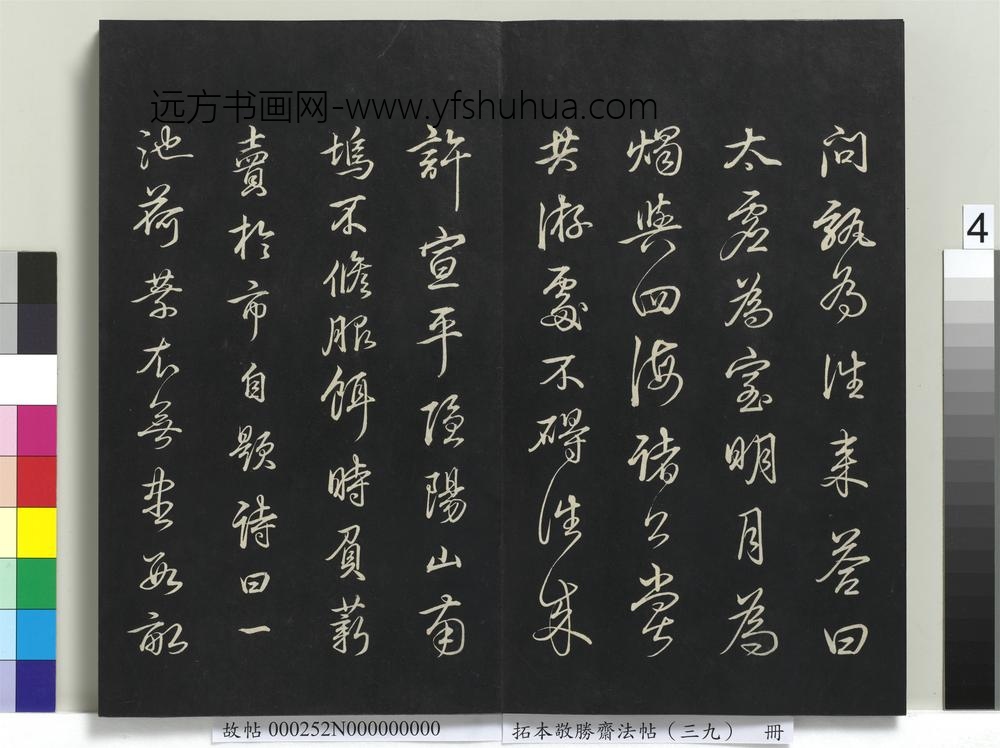 远方书画网-www.yfshuhua.com
问孰为往来答曰
太虚為室明月為
燭與四海諸公嘗
共游處不碍往來
許宣平隱陽山南
塢不脩服餌時負薪
賣於市自題詩曰一
池荷葉衣無盡數畝
4
故帖 000252N000000000
拓本敬勝齋法帖（三九） 冊